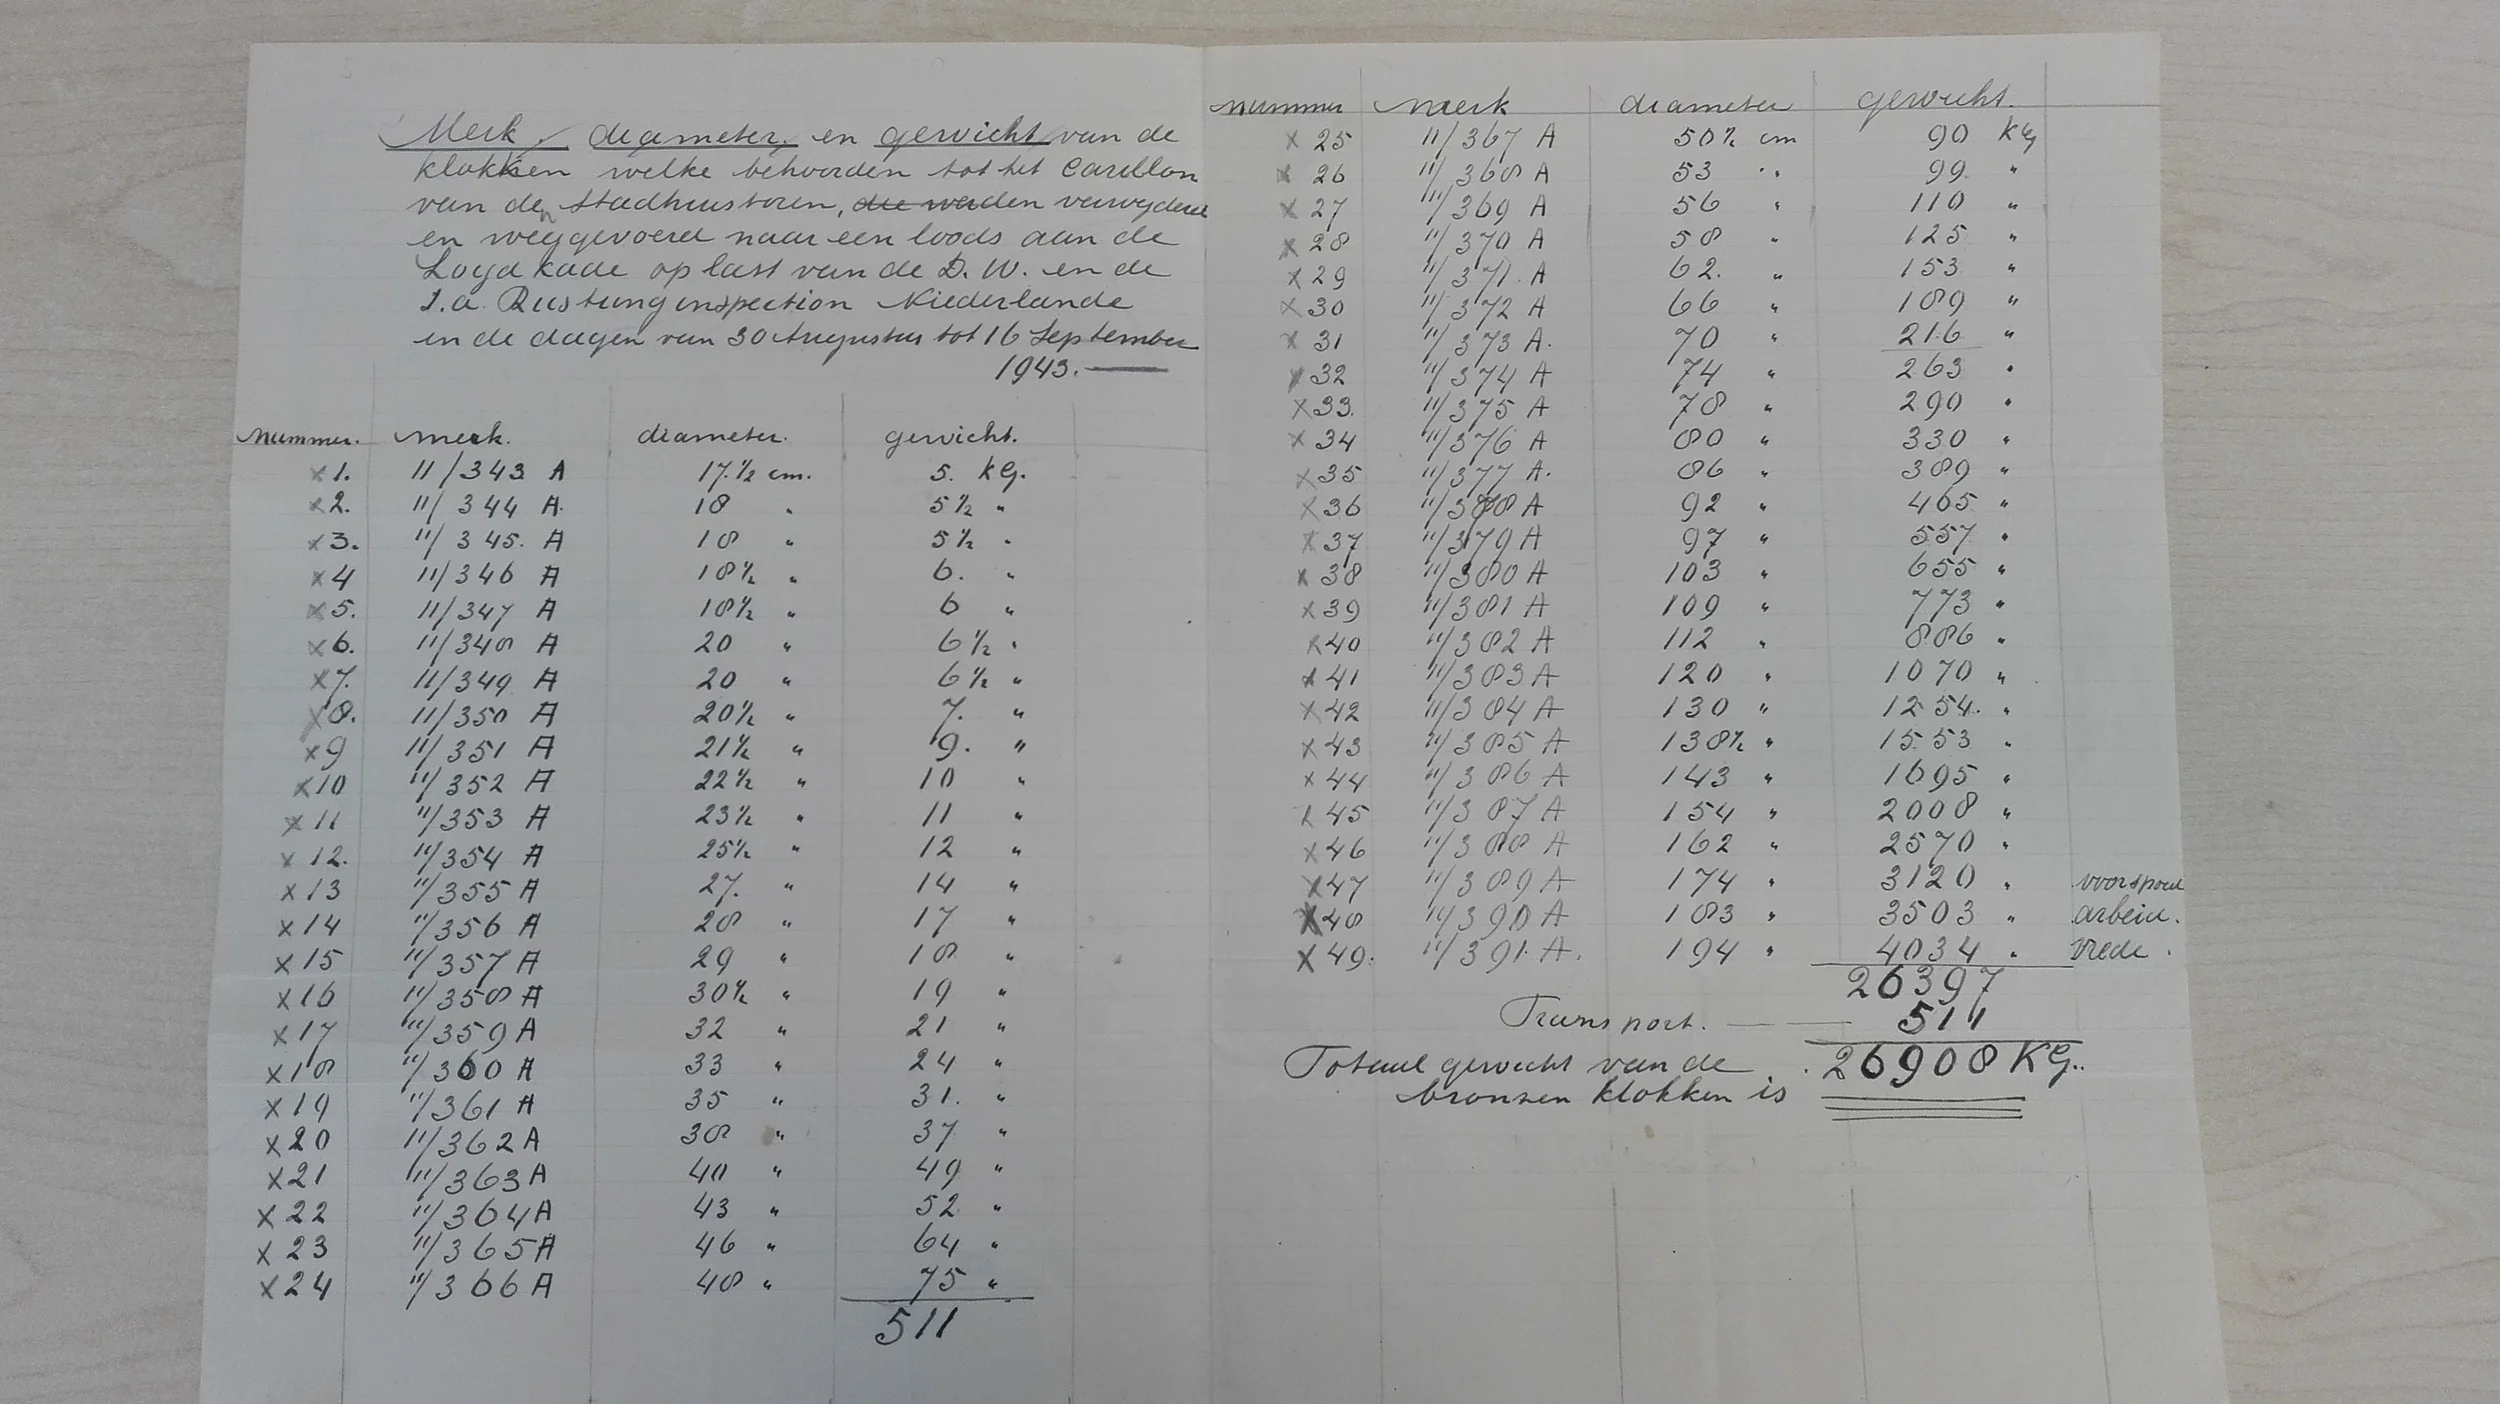 Merk, diameter, en gewicht van de
klokken welke behoorden tot het Carillon
van den Stadhuistoren, die werden verwyderd
en weggevoerd naar een loods aan de
Loyd kade op last van de D. W. en de
I.a. Rustung inspection Niederlande
in de dagen van 30 Augustus tot 16 September
1943.
nummer. merk. diameter. gewicht.
x 1. 11/343 A 17 1/2 cm. 5. KG.
x 2. 11/344 A. 18 " 5 1/2 "
x 3. 11/345. A 18 " 5 1/2 "
x 4 11/346 A 18 1/2 " 6. "
x 5. 11/347 A 18 1/2 " 6 "
x 6. 11/348 A 20 " 6 1/2 "
x 7. 11/349 A 20 " 6 1/2 "
x 8. 11/350 A 20 1/2 " 7. "
x 9 11/351 A 21 1/2 " 9. "
x 10 11/352 A 22 1/2 " 10 "
x 11 11/353 A 23 1/2 " 11 "
x 12. 11/354 A 25 1/2 " 12 "
x 13 11/355 A 27. " 14 "
x 14 11/356 A 28 " 17 "
x 15 11/357 A 29 " 18 "
x 16 11/358 A 30 1/2 " 19 "
x 17 11/359 A 32 " 21 "
x 18 11/360 A 33 " 24 "
x 19 11/361 A 35 " 31. "
x 20 11/362 A 38 " 37 "
x 21 11/363 A 40 " 49 "
x 22 11/364 A 43 " 52 "
x 23 11/365 A 46 " 64 "
x 24 11/366 A 48 " 75 "
511
nummer merk diameter gewicht.
x 25 11/367 A 50 1/2 cm 90 KG
x 26 11/368 A 53 " 99. "
x 27 11/369 A 56 " 110 "
x 28 11/370 A 58 " 125 "
x 29 11/371. A 62. " 153 "
x 30 11/372 A 66 " 189 "
x 31 11/373 A. 70 " 216 "
x 32 11/374 A 74 " 263 "
x 33. 11/375 A 78 " 290 "
x 34 11/376 A 80 " 330 "
x 35 11/377 A. 86 " 389 "
x 36 11/378 A 92 " 465 "
x 37 11/379 A 97 " 557 "
x 38 11/380 A 103 " 655 "
x 39 11/381 A 109 " 773 "
x 40 11/382 A 112 " 886 "
x 41 11/383 A 120 " 1070 "
x 42 11/384 A 130 " 1254. "
x 43 11/385 A 138 1/2 " 1553 "
x 44 11/386 A 143 " 1695 "
x 45 11/387 A 154 " 2008 "
x 46 11/388 A 162 " 2570 "
x 47 11/389 A 174 " 3120 " voorspoed
x 48 11/390 A 183 " 3503 " arbeid.
x 49. 11/391. A. 194 " 4034 " vrede.
26397
Transport. — 511
Totaal gewicht van de 26908 KG.
bronzen klokken is